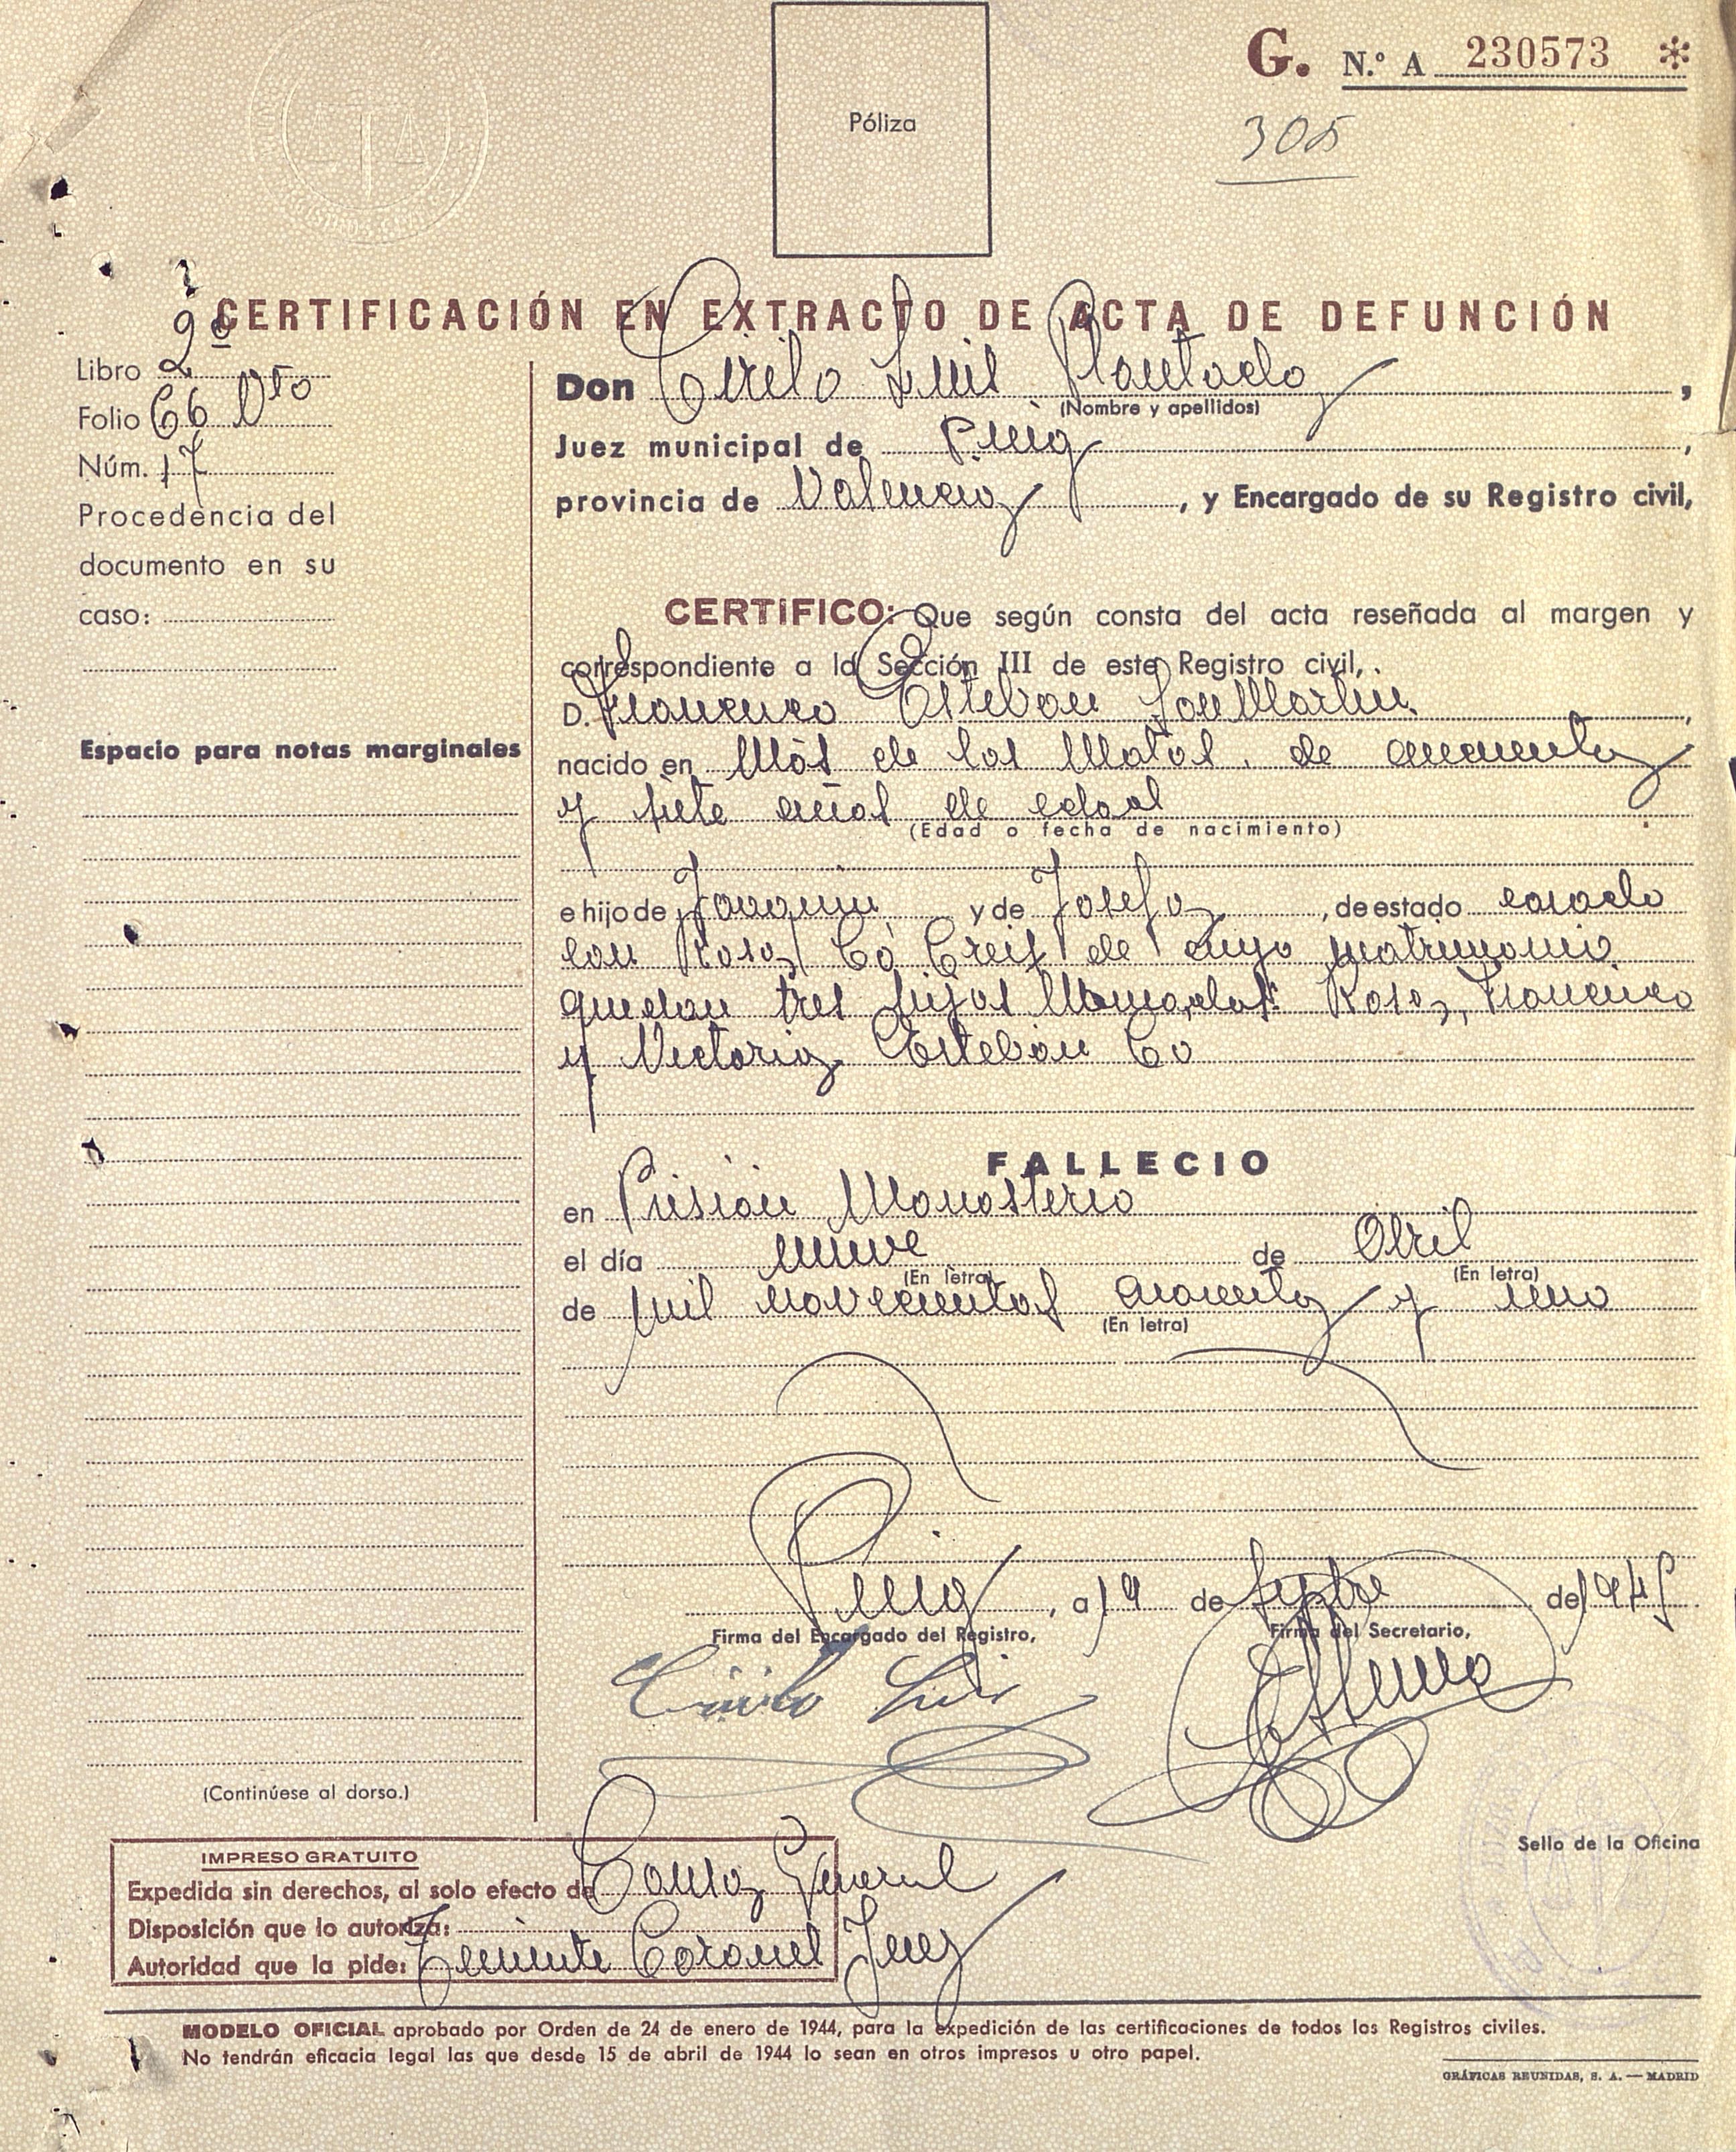 Póliza
G. N.º A 230573 *
305
CERTIFICACIÓN EN EXTRACTO DE ACTA DE DEFUNCIÓN
Libro 2º
Folio 66 vto
Núm. 17
Procedencia del
documento en su
caso:
Espacio para notas marginales
(Continúese al dorso.)
Don Cirilo Luis Plantado,
(Nombre y apellidos)
Juez municipal de Puig,
provincia de Valencia, y Encargado de su Registro civil,
CERTIFICO: Que según consta del acta reseñada al margen y
correspondiente a la Sección III de este Registro civil,
D. Francisco Esteban SanMartin,
nacido en Más de las Matas. de cuarenta
y siete años de edad
(Edad o fecha de nacimiento)
e hijo de Joaquin y de Josefa, de estado casado
con Rosa Có Creix de cuyo matrimonio
quedan tres hijos llamados: Rosa, Francisco
y Victoria Esteban Co
FALLECIO
en Prisión Monasterio
el día nueve de Abril
(En letra) (En letra)
de mil novecientos cuarenta y uno
(En letra)
Puig, a 19 de Septbre de 1945.
Firma del Encargado del Registro, Firma del Secretario,
Cirilo Luis
Sello de la Oficina
IMPRESO GRATUITO
Expedida sin derechos, al solo efecto de Causa General
Disposición que lo autoriza:
Autoridad que la pide: Teniente Coronel Juez
MODELO OFICIAL aprobado por Orden de 24 de enero de 1944, para la expedición de las certificaciones de todos los Registros civiles.
No tendrán eficacia legal las que desde 15 de abril de 1944 lo sean en otros impresos u otro papel.
GRÁFICAS REUNIDAS, S. A. — MADRID